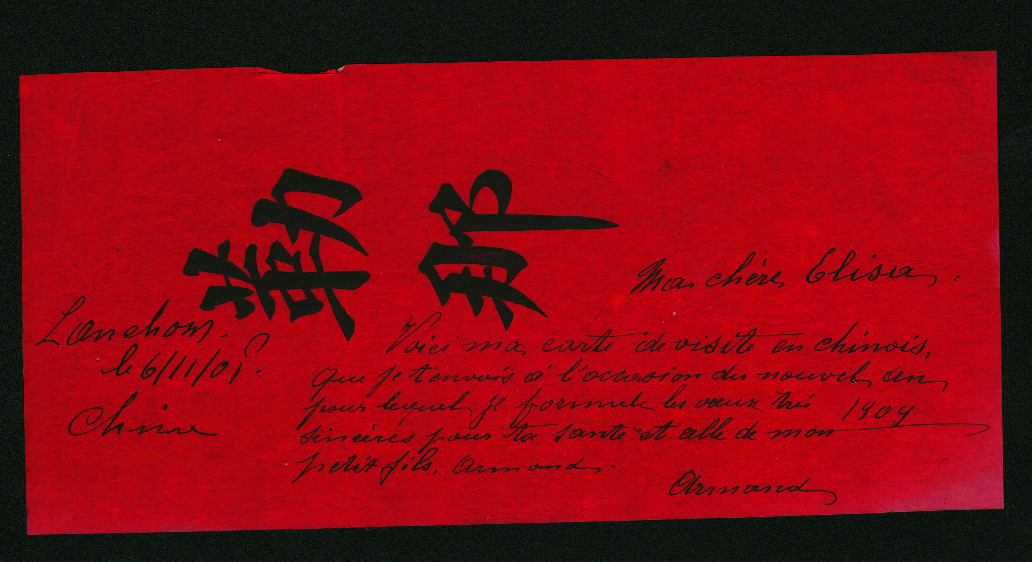 勒那
Ma chère Elisa.
Lanchow.
le 6/11/08.
Chine
Voici ma carte de visite en chinois,
que je t'envois à l'occasion du nouvel an
pour lequel je formule les voeux très 1909
sincères pour ta santé et celle de mon
petit fils, Armand.
Armand